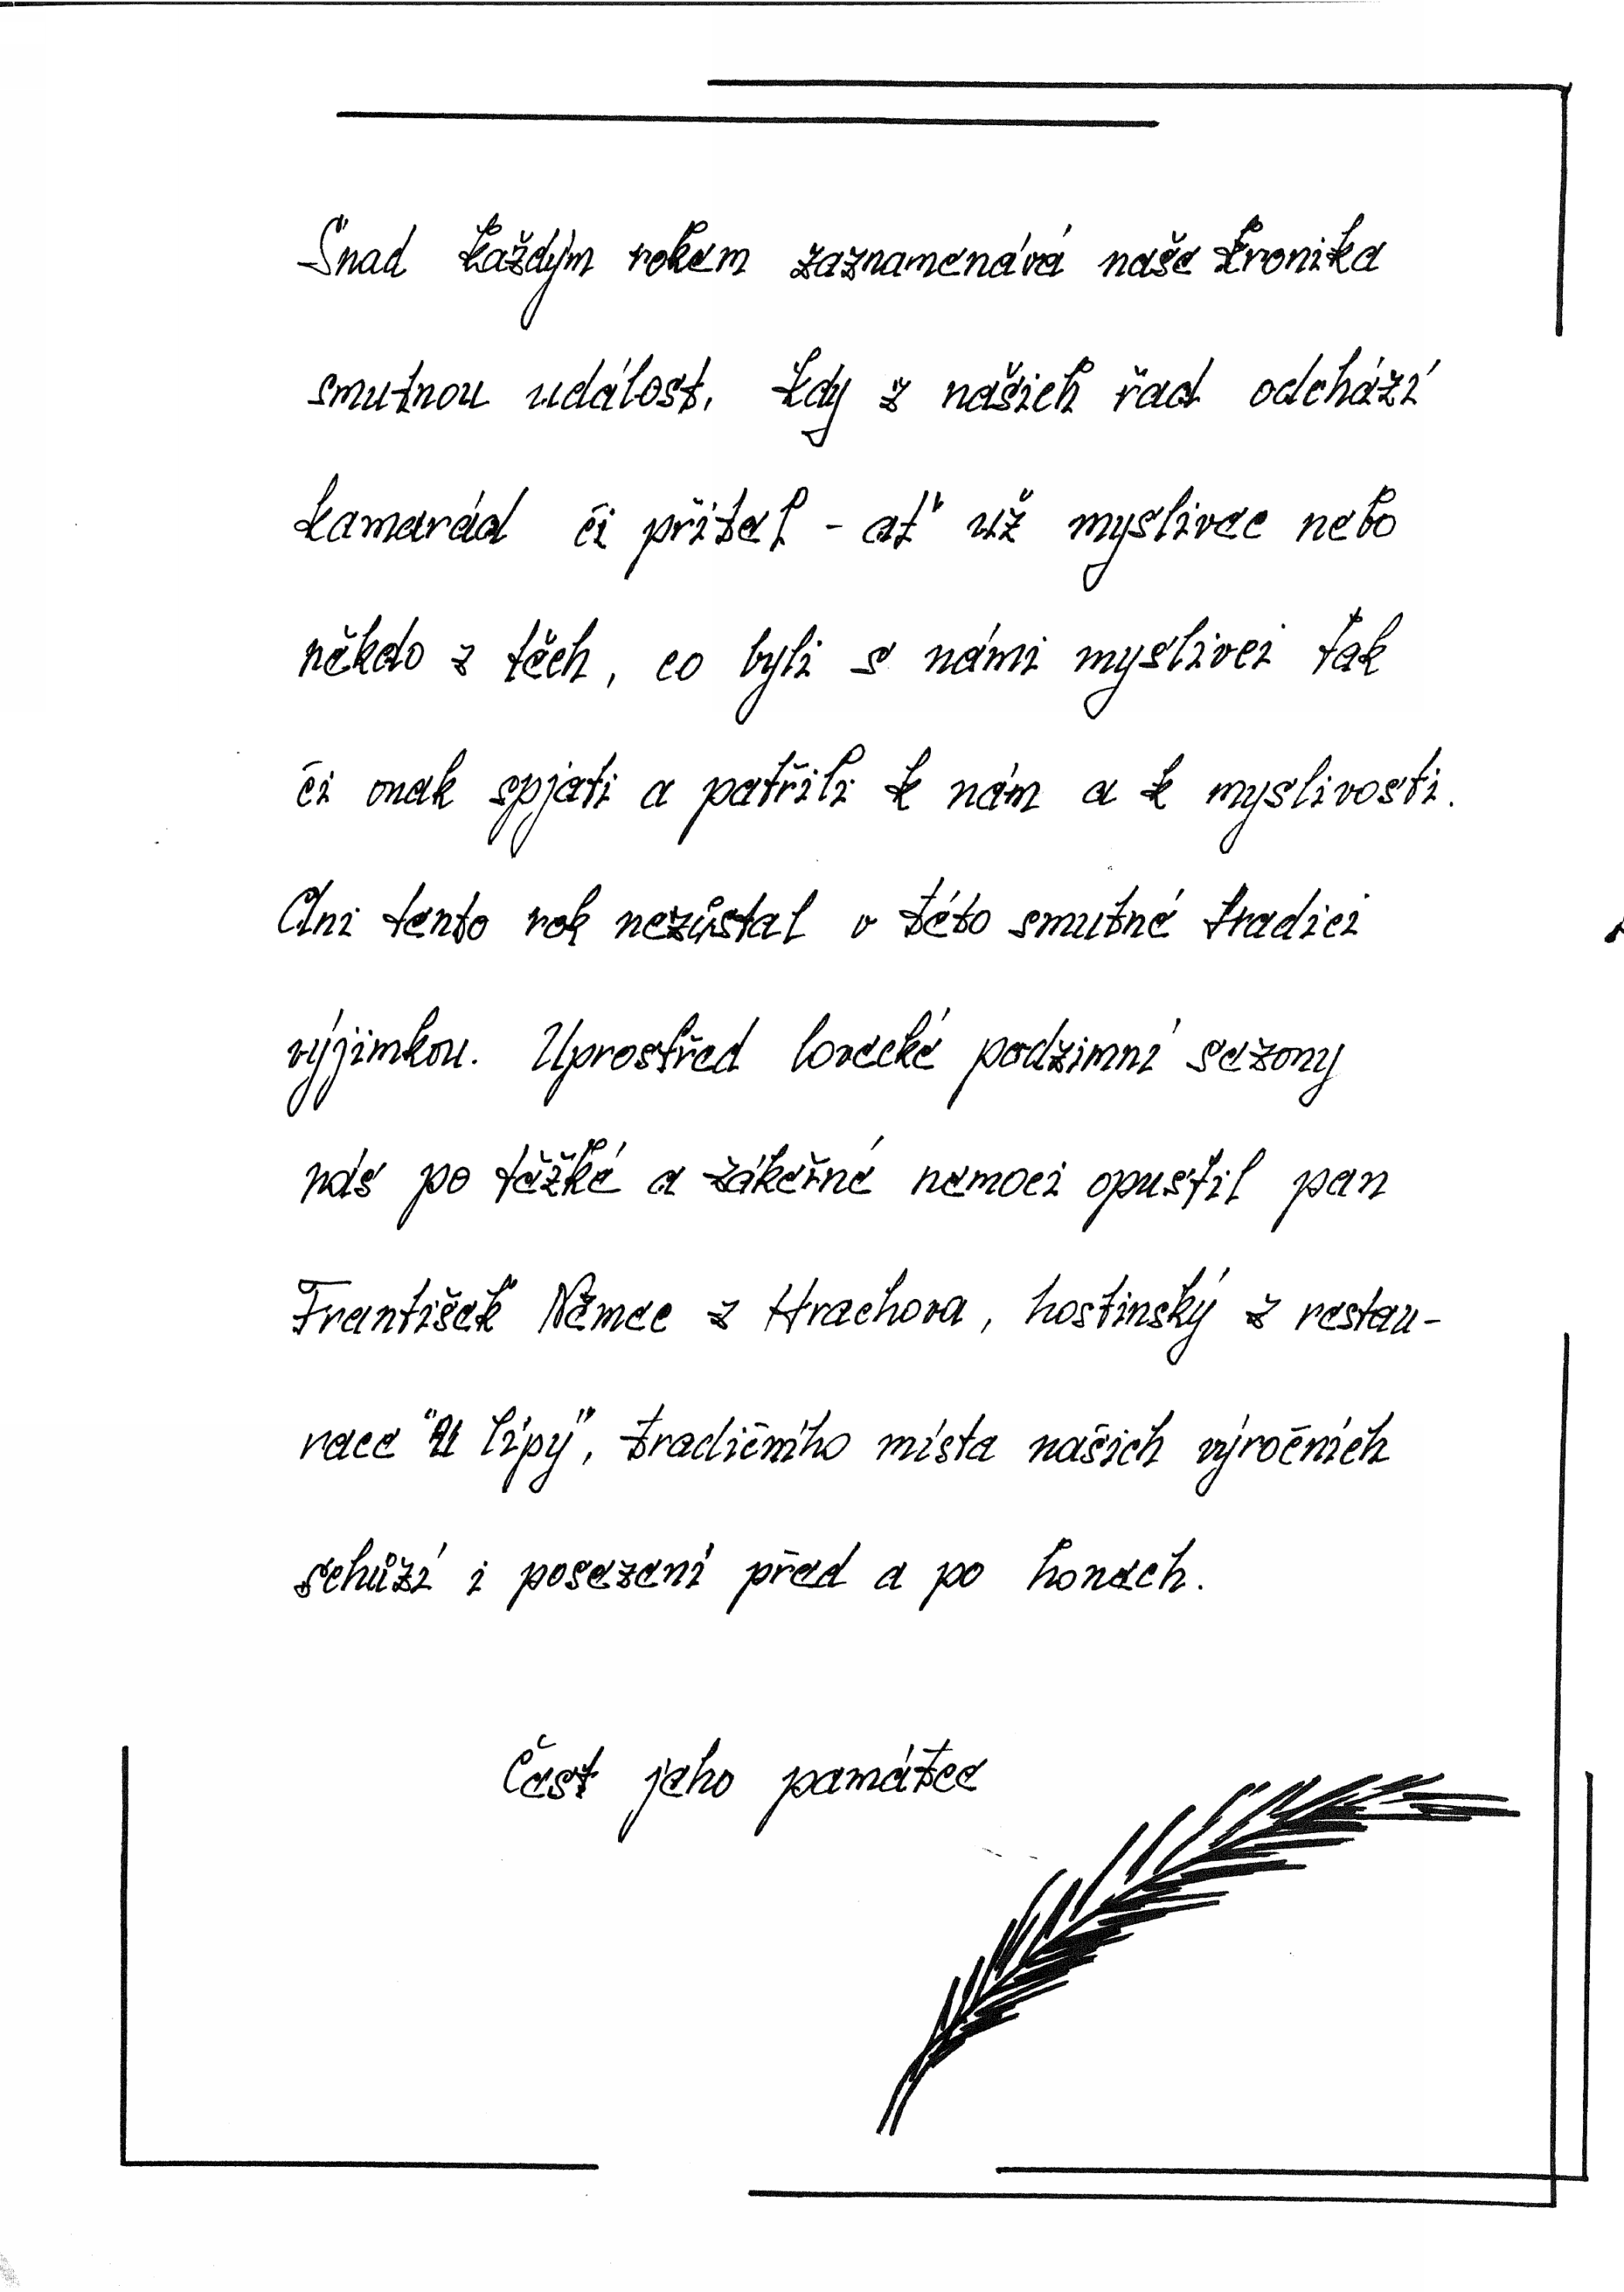 Snad každým rokem zaznamenává naše kronika
smutnou událost, kdy z našich řad odchází
kamarád či přítel - ať už myslivec nebo
někdo z těch, co byli s námi myslivci tak
či onak spjati a patřili k nám a k myslivosti.
Ani tento rok nezůstal v této smutné tradici
výjimkou. Uprostřed lovecké podzimní sezony
nás po těžké a zákeřné nemoci opustil pan
František Němec z Hrachova, hostinský z restau-
race "U lípy", tradičního místa našich výročních
schůzí i posezení před a po honech.
Čest jeho památce